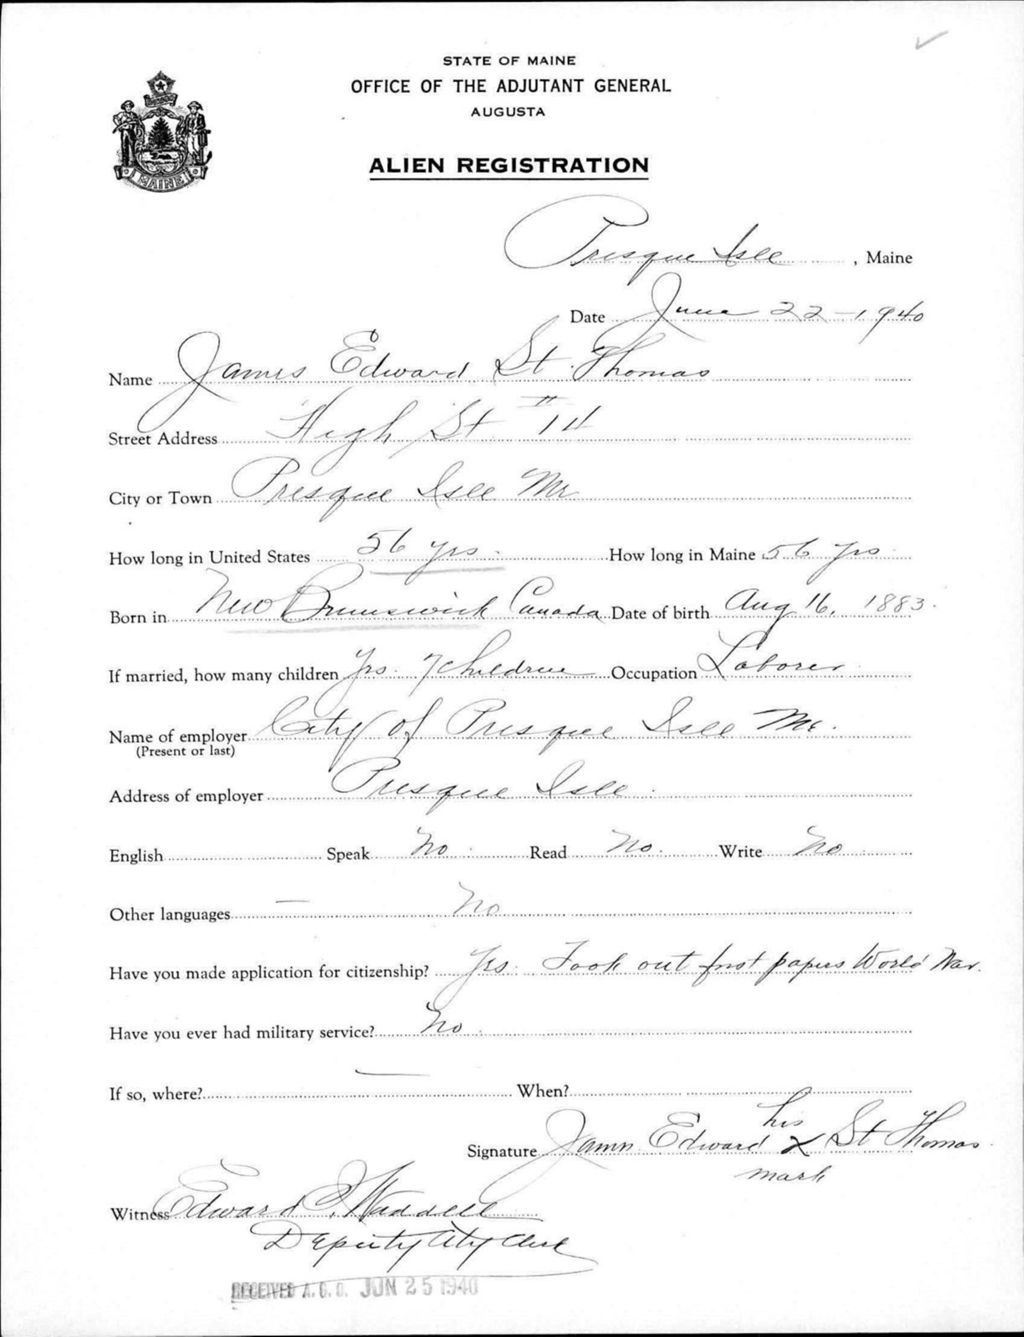 STATE OF MAINE
OFFICE OF THE ADJUTANT GENERAL
AUGUSTA
MAINE
ALIEN REGISTRATION
Presque Isle, Maine
Date June 22-1940
Name James Edward St. Thomas
Street Address High St # 14
City or Town Presque Isle Me
How long in United States 56 yrs. How long in Maine 56 yrs
Born in New Brunswick Canada Date of birth Aug 16, 1883.
If married, how many children Yes. 7 children Occupation Laborer
Name of employer City of Presque Isle Me.
(Present or last)
Address of employer Presque Isle.
English Speak No. Read No. Write No
Other languages — No
Have you made application for citizenship? Yes. Took out first papers World War.
Have you ever had military service? No.
If so, where? — When?
his
Signature James Edward X St Thomas
mark
Witness Edward Waddell
Deputy City Clerk
RECEIVED A.G.O. JUN 25 1940